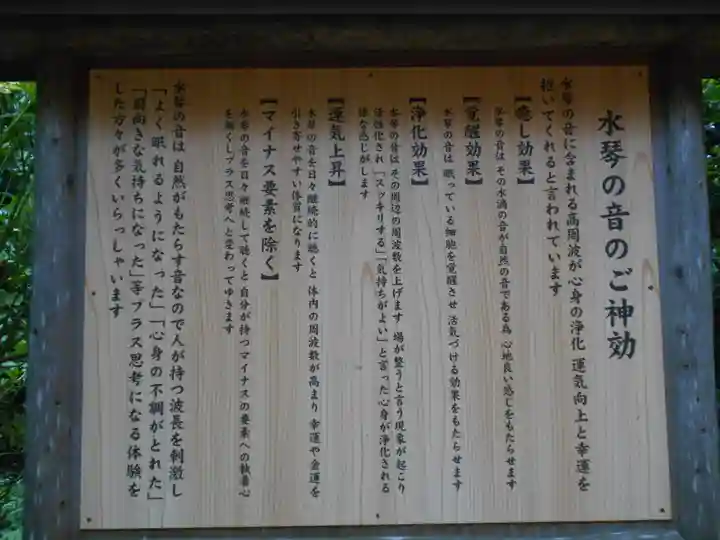 水琴の音のご神効
水琴の音に含まれる高周波が心身の浄化 運気向上と幸運を
招いてくれると言われています
【癒し効果】
水琴の音は その水滴の音が自然の音である為 心地良い感じをもたらせます
【覚醒効果】
水琴の音は 眠っている細胞を覚醒させ 活気づける効果をもたらせます
【浄化効果】
水琴の音は その周辺の周波数を上げます 場が整うと言う現象が起こり
活性化され「スッキリする」「気持ちがよい」と言った心身が浄化される
様な感じがします
【運気上昇】
水琴の音を日々継続的に聴くと 体内の周波数が高まり 幸運や金運を
引き寄せやすい体質になります
【マイナス要素を除く】
水琴の音を日々継続して聴くと自分が持つマイナスの要素への執着心
を無くしプラス思考へと変わってゆきます
水琴の音は 自然がもたらす音なので人が持つ波長を刺激し
「よく眠れるようになった」「心身の不調がとれた」
「前向きな気持ちになった」等プラス思考になる体験を
した方々が多くいらっしゃいます